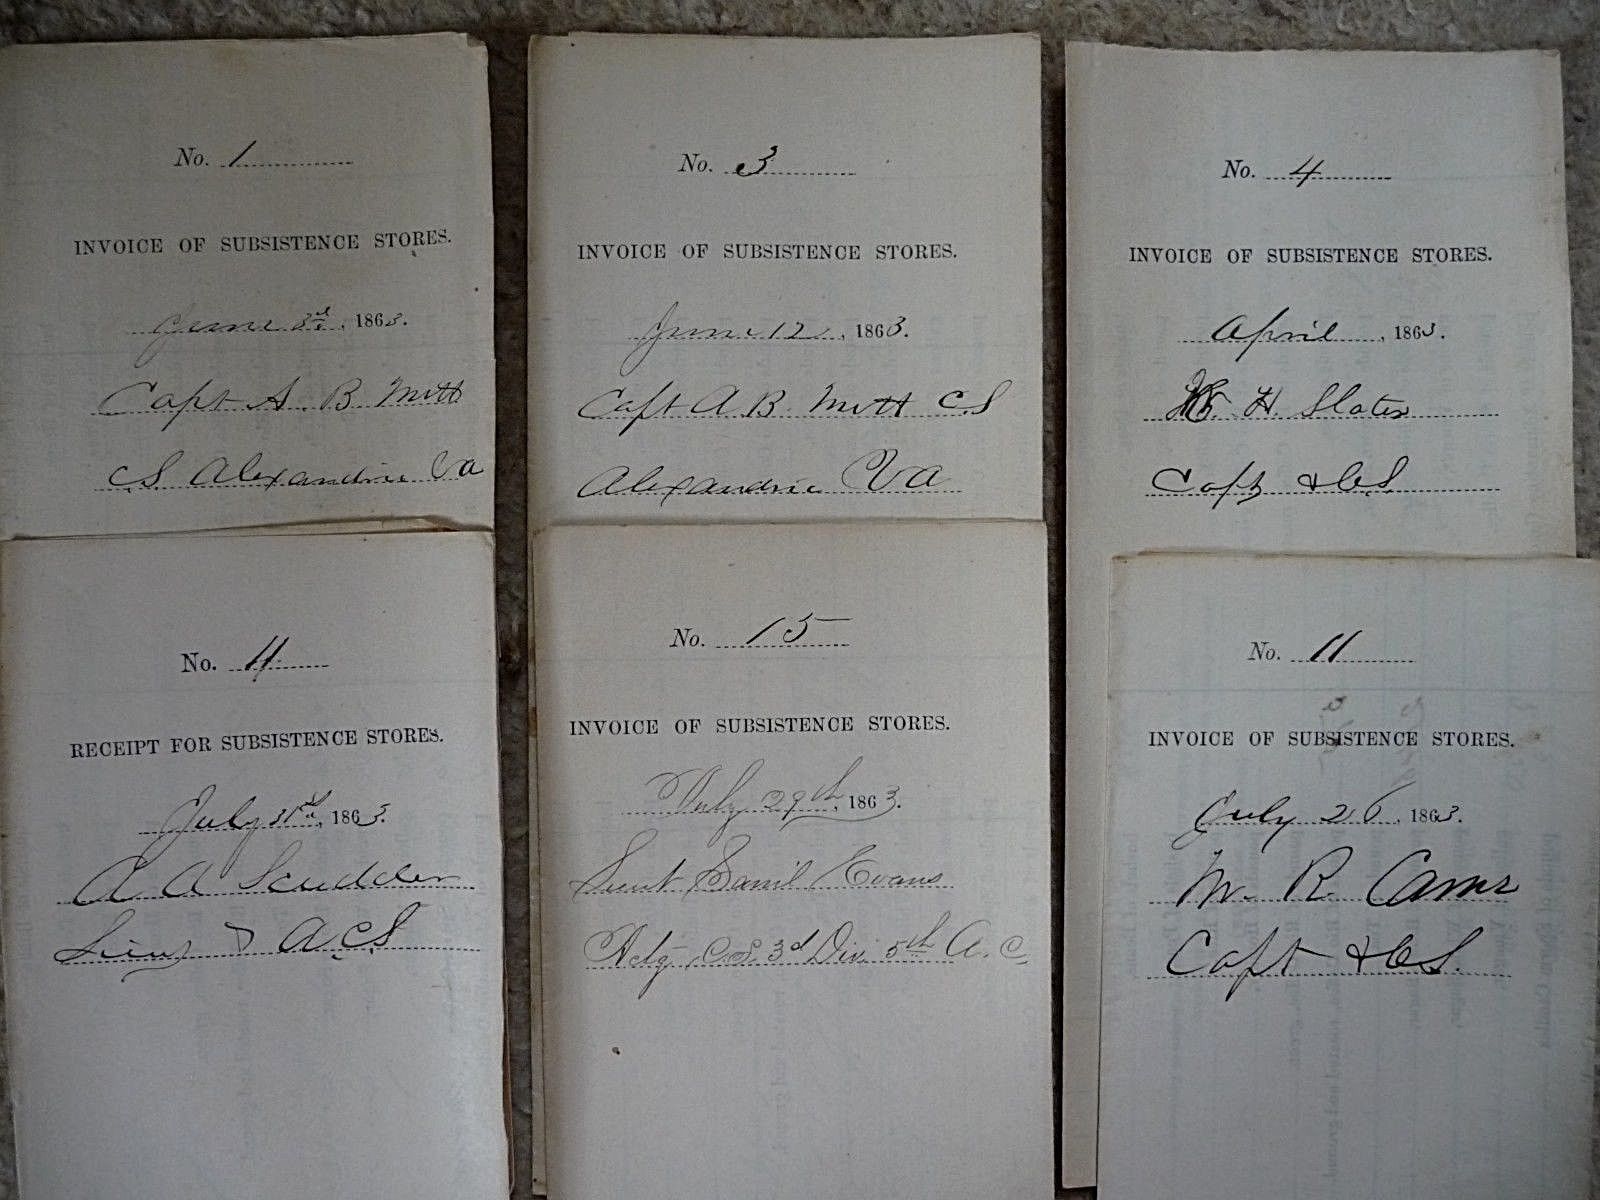 No. 1
INVOICE OF SUBSISTENCE STORES.
June 3rd, 1863.
Capt A. B. Mott
CS Alexandria Va
No. 3
INVOICE OF SUBSISTENCE STORES.
June 12, 1863.
Capt A B. Mott CS
Alexandria VA
No. 4
INVOICE OF SUBSISTENCE STORES.
April, 1863.
H. Slater
Capt & C.S.
No. 4
RECEIPT FOR SUBSISTENCE STORES.
July 31st, 1863.
A A Scudder
Lieut & A.C.S
No. 15
INVOICE OF SUBSISTENCE STORES.
July 29th, 1863.
Lieut Danil Evans
Actg C.S. 3d Div. 5th A. C.
No. 11
INVOICE OF SUBSISTENCE STORES.
July 26, 1863.
R.
Capt & CS.